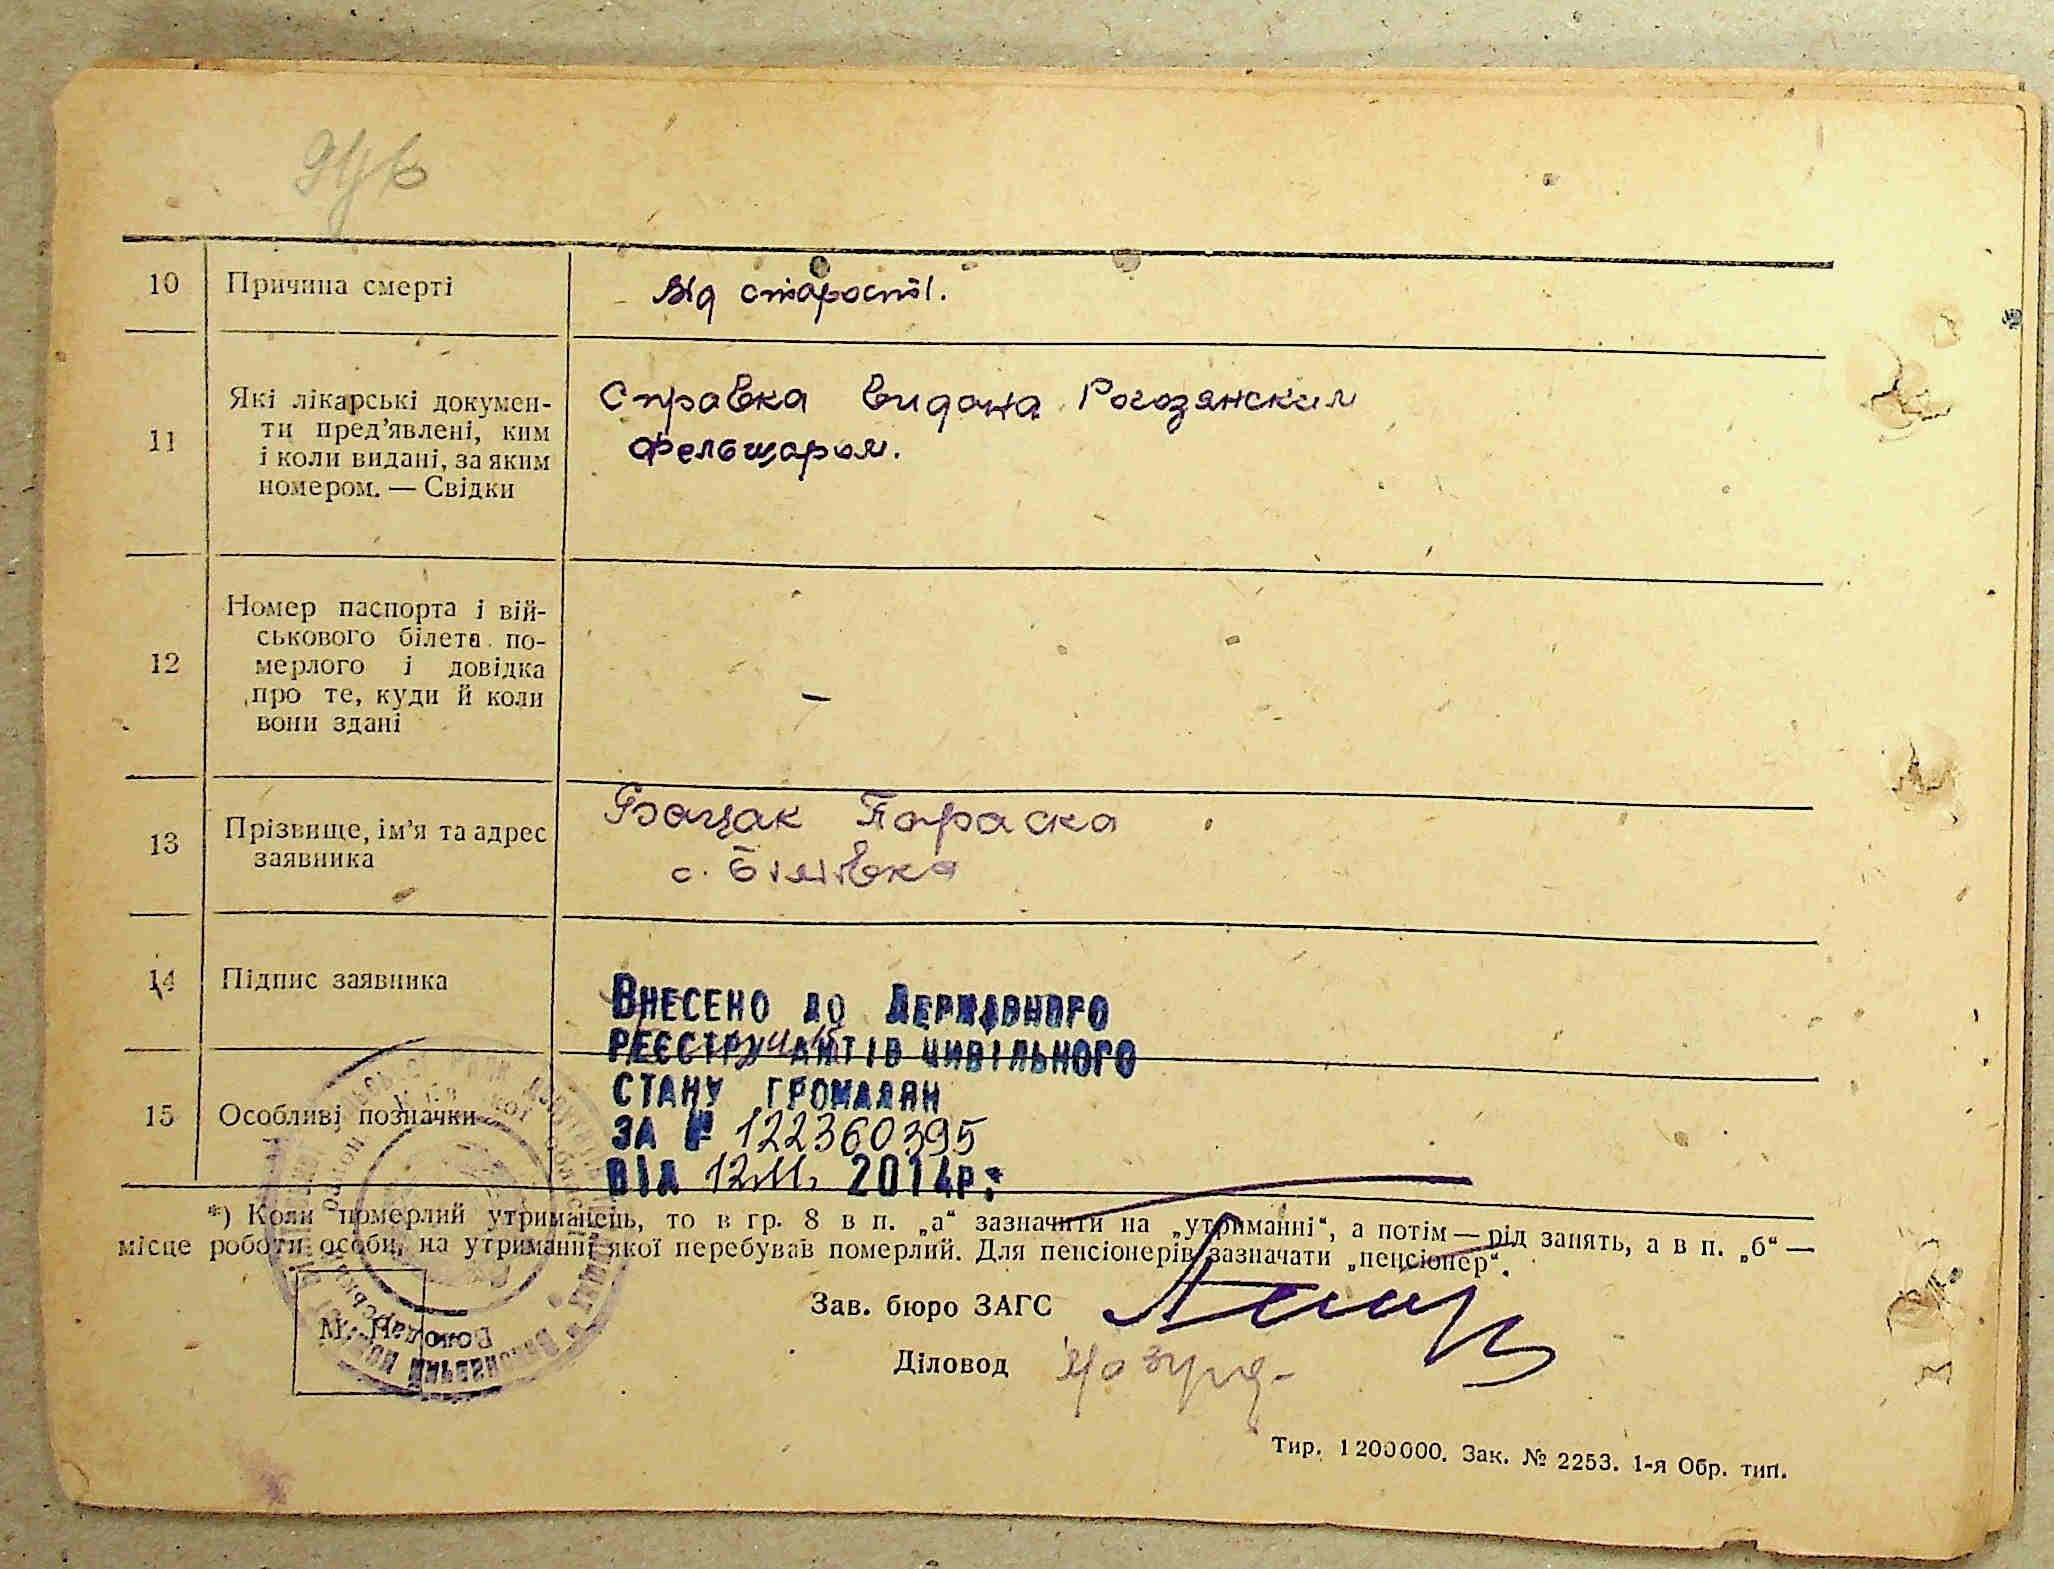 10 Причина смерті
Від старості.
11 Які лікарські докумен-
ти пред'явлені, ким
і коли видані, за яким
номером. — Свідки
Справка видана Рогозянским
фельшаром.
12 Номер паспорта і вій-
ськового білета по-
мерлого і довідка
про те, куди й коли
вони здані
—
13 Прізвище, ім'я та адрес
заявника
Параска
с. Білівка
14 Підпис заявника
15 Особливі позначки
Внесено до Державного
реєстру актів цивільного
стану громадян
за № 122360395
від 12.11. 2014р.
*) Коли померлий утриманець, то в гр. 8 в п. „а“ зазначити на „утриманні“, а потім — рід занять, а в п. „б“ —
місце роботи особи, на утриманні якої перебував померлий. Для пенсіонерів зазначати „пенсіонер“.
Зав. бюро ЗАГС
М. П.
Діловод
Тир. 1200000. Зак. № 2253. 1-я Обр. тип.